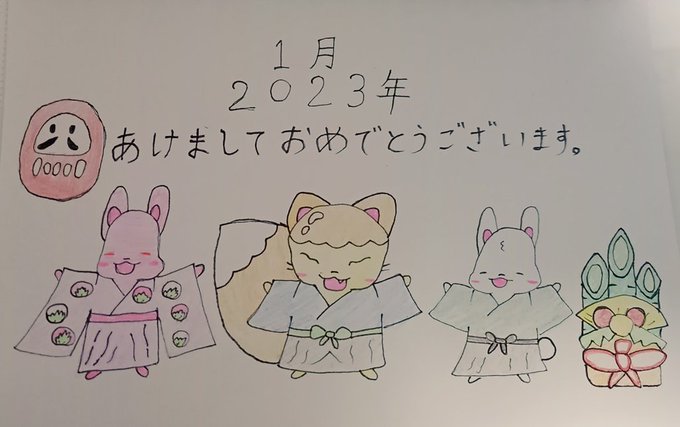 1月
2023年
あけましておめでとうございます。